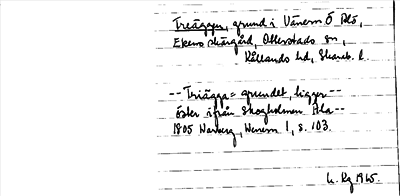 Treäggen, grund i Vänern Ö Alö,
Ekens skärgård, Otterstads sn,
Kållands hd, Skarab. l.
-- Triägga = grundet, ligger --
öster ifrån Skogholmen Ala --
1805 Warberg, Wenern 1, s. 103.
1965.